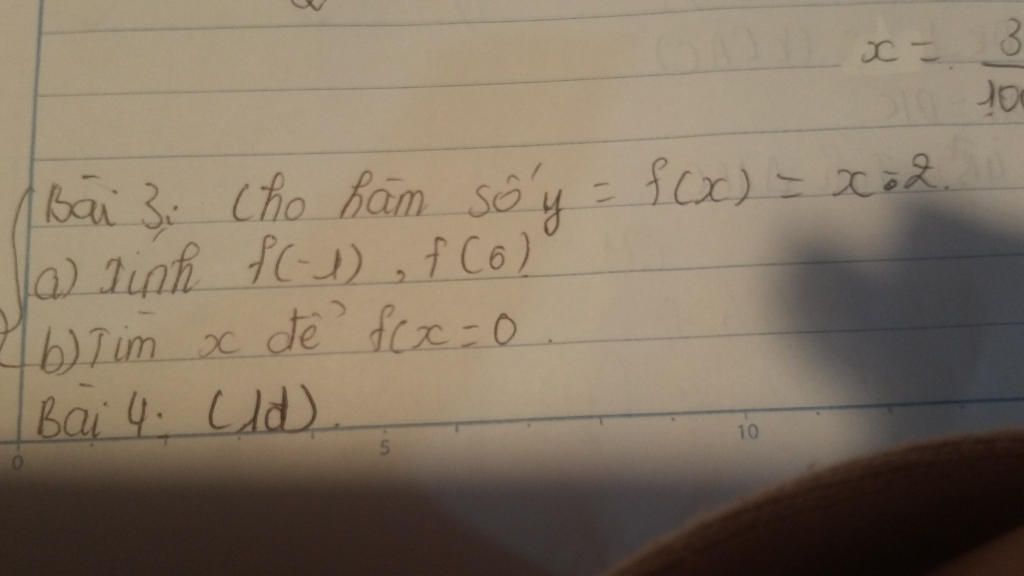 x = 3
100
Bài 3: Cho hàm số y = f(x) = x:2.
a) Tính f(-1), f(6)
b) Tìm x để f(x=0.
Bài 4: (1đ).
0 5 10